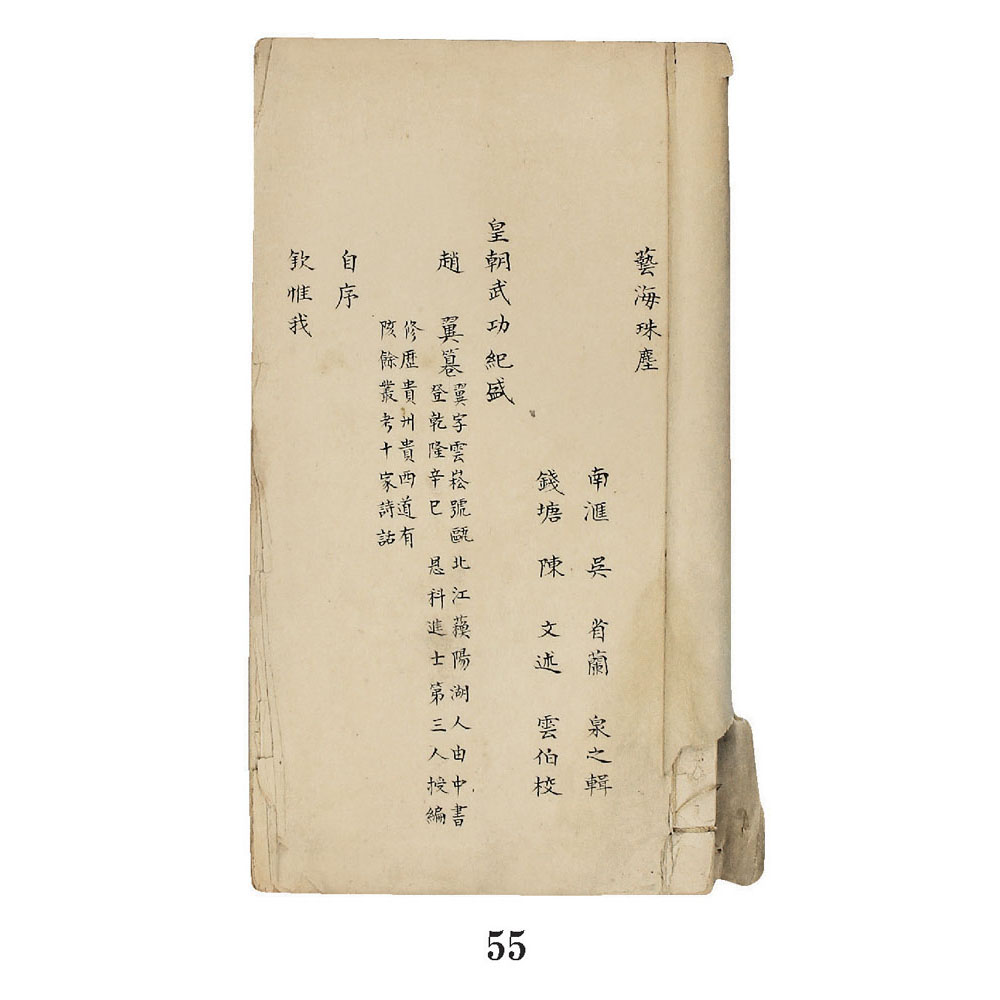 藝海珠塵
南滙 吳 省蘭 泉之輯
錢塘 陳 文述 雲伯校
皇朝武功紀盛
趙 翼簒
翼字雲崧號甌北江蘓陽湖人由中書
登乾隆辛巳 恩科進士第三人授編
修歴貴州貴西道有
陔餘叢考十家詩話
自序
欽惟我
55